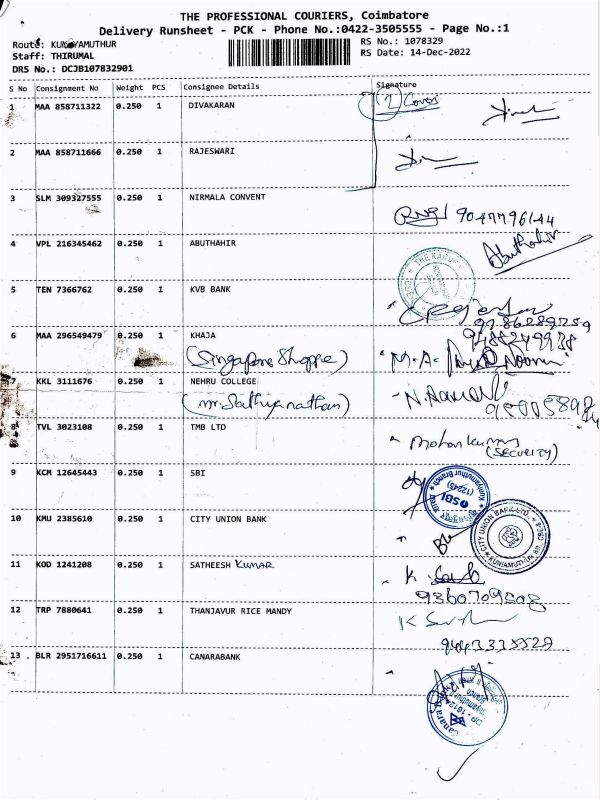 THE PROFESSIONAL COURIERS, Coimbatore
Delivery Runsheet - PCK - Phone No.:0422-3505555 - Page No.:1
Route: KUNIYAMUTHUR
RS No.: 1078329
Staff: THIRUMAL
RS Date: 14-Dec-2022
DRS No.: DCJB107832901
S No Consignment No Weight PCS Consignee Details Signature
1 MAA 858711322 0.250 1 DIVAKARAN (2) Covers
2 MAA 858711666 0.250 1 RAJESWARI
3 SLM 309327555 0.250 1 NIRMALA CONVENT
9047796144
4 VPL 216345462 0.250 1 ABUTHAHIR Abuthahir
5 TEN 7366762 0.250 1 KVB BANK
6 MAA 296549479 0.250 1 KHAJA
(Singapore Shoppe)
7 KKL 3111676 0.250 1 NEHRU COLLEGE
(Mr. Sathiyanathan)
8 TVL 3023108 0.250 1 TMB LTD Mohankumar
(SECURITY)
9 KCM 12645443 0.250 1 SBI
SBI
10 KMU 2385610 0.250 1 CITY UNION BANK
CITY UNION BANK LTD.
11 KOD 1241208 0.250 1 SATHEESH KUMAR
9360709508
12 TRP 7880641 0.250 1 THANJAVUR RICE MANDY
13 . BLR 2951716611 0.250 1 CANARABANK